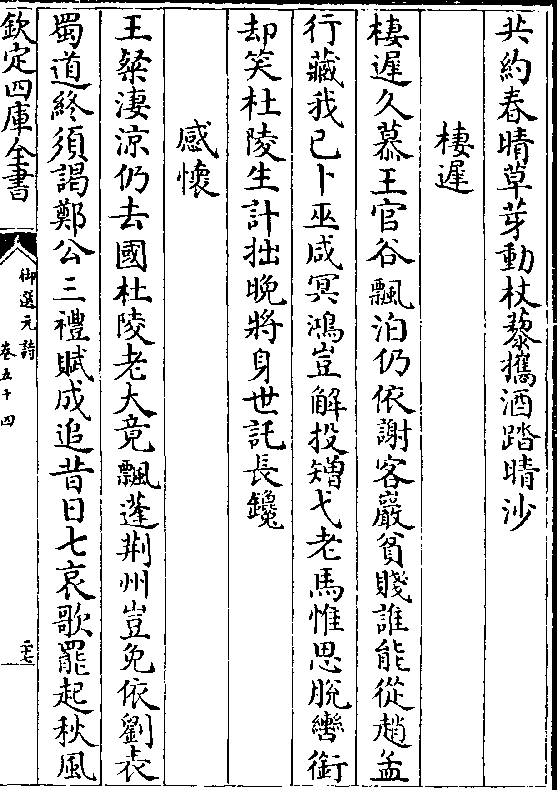 共約春晴草芽動杖藜攜酒踏晴沙
棲遲
棲遲久慕王官谷飄泊仍依謝客巖貧賤誰能從趙孟
行藏我已卜巫咸冥鴻豈解投矰弋老馬惟思脫轡銜
却笑杜陵生計拙晚將身世託長鑱
感懷
王粲淒涼仍去國杜陵老大竟飄蓬荆州豈免依劉表
蜀道終須謁鄭公三禮賦成追昔日七哀歌罷起秋風
欽定四庫全書
御選元詩
卷五十四
二十七